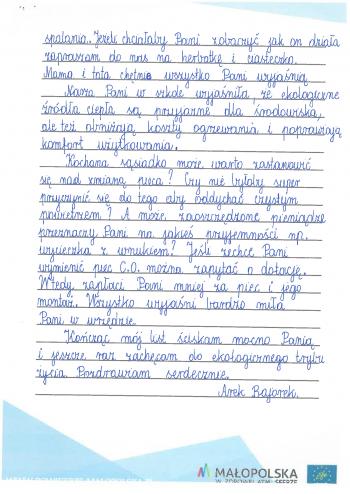 spalania. Jeżeli chciałaby Pani zobaczyć jak on działa
zapraszam do nas na herbatkę i ciasteczka.
Mama i tata chętnie wszystko Pani wyjaśnią.
Nasza Pani w szkole wyjaśniła, że ekologiczne
źródła ciepła są przyjazne dla środowiska,
ale też obniżają koszty ogrzewania i poprawiają
komfort użytkowania.
Kochana sąsiadko może warto zastanowić
się nad zmianą pieca? Czy nie byłoby super
przyczynić się do tego aby oddychać czystym
powietrzem? A może zaoszczędzone pieniądze
przeznaczy Pani na jakieś przyjemności np.
wycieczka z wnukiem? Jeśli zechce Pani
wymienić piec C.O. można zapytać o dotację.
Wtedy zapłaci Pani mniej za piec i jego
montaż. Wszystko wyjaśni bardzo miła
Pani w urzędzie.
Kończąc mój list ściskam mocno Panią
i jeszcze raz zachęcam do ekologicznego trybu
życia. Pozdrawiam serdecznie.
Arek Bajorek.
MAŁOPOLSKA
W ZDROWEJ ATMOSFERZE